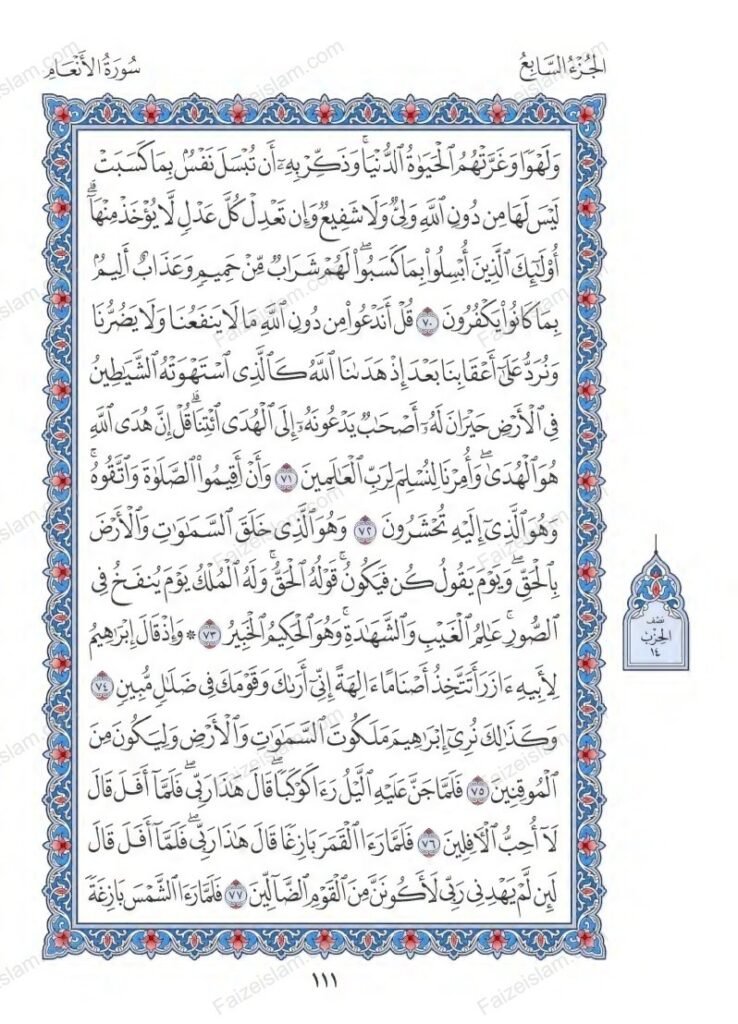 الجُزْءُ السَّابِعُ
سُورَةُ الأَنْعَامِ
وَلَهْوًا وَغَرَّتْهُمُ ٱلْحَيَوٰةُ ٱلدُّنْيَا ۚ وَذَكِّرْ بِهِۦٓ أَن تُبْسَلَ نَفْسٌۢ بِمَا كَسَبَتْ
لَيْسَ لَهَا مِن دُونِ ٱللَّهِ وَلِىٌّ وَلَا شَفِيعٌ وَإِن تَعْدِلْ كُلَّ عَدْلٍ لَّا يُؤْخَذْ مِنْهَآ ۗ
أُو۟لَٰٓئِكَ ٱلَّذِينَ أُبْسِلُوا۟ بِمَا كَسَبُوا۟ ۖ لَهُمْ شَرَابٌ مِّنْ حَمِيمٍ وَعَذَابٌ أَلِيمٌۢ
بِمَا كَانُوا۟ يَكْفُرُونَ ٧٠ قُلْ أَنَدْعُوا۟ مِن دُونِ ٱللَّهِ مَا لَا يَنفَعُنَا وَلَا يَضُرُّنَا
وَنُرَدُّ عَلَىٰٓ أَعْقَابِنَا بَعْدَ إِذْ هَدَىٰنَا ٱللَّهُ كَٱلَّذِى ٱسْتَهْوَتْهُ ٱلشَّيَٰطِينُ
فِى ٱلْأَرْضِ حَيْرَانَ لَهُۥٓ أَصْحَٰبٌ يَدْعُونَهُۥٓ إِلَى ٱلْهُدَى ٱئْتِنَا ۗ قُلْ إِنَّ هُدَى ٱللَّهِ
هُوَ ٱلْهُدَىٰ ۖ وَأُمِرْنَا لِنُسْلِمَ لِرَبِّ ٱلْعَٰلَمِينَ ٧١ وَأَنْ أَقِيمُوا۟ ٱلصَّلَوٰةَ وَٱتَّقُوهُ ۚ
وَهُوَ ٱلَّذِىٓ إِلَيْهِ تُحْشَرُونَ ٧٢ وَهُوَ ٱلَّذِى خَلَقَ ٱلسَّمَٰوَٰتِ وَٱلْأَرْضَ
بِٱلْحَقِّ ۖ وَيَوْمَ يَقُولُ كُن فَيَكُونُ ۚ قَوْلُهُ ٱلْحَقُّ ۚ وَلَهُ ٱلْمُلْكُ يَوْمَ يُنفَخُ فِى
ٱلصُّورِ ۚ عَٰلِمُ ٱلْغَيْبِ وَٱلشَّهَٰدَةِ ۚ وَهُوَ ٱلْحَكِيمُ ٱلْخَبِيرُ ٧٣ ۞ وَإِذْ قَالَ إِبْرَٰهِيمُ
لِأَبِيهِ ءَازَرَ أَتَتَّخِذُ أَصْنَامًا ءَالِهَةً ۖ إِنِّىٓ أَرَىٰكَ وَقَوْمَكَ فِى ضَلَٰلٍ مُّبِينٍ ٧٤
وَكَذَٰلِكَ نُرِىٓ إِبْرَٰهِيمَ مَلَكُوتَ ٱلسَّمَٰوَٰتِ وَٱلْأَرْضِ وَلِيَكُونَ مِنَ
ٱلْمُوقِنِينَ ٧٥ فَلَمَّا جَنَّ عَلَيْهِ ٱلَّيْلُ رَءَا كَوْكَبًا ۖ قَالَ هَٰذَا رَبِّى ۖ فَلَمَّآ أَفَلَ قَالَ
لَآ أُحِبُّ ٱلْءَافِلِينَ ٧٦ فَلَمَّا رَءَا ٱلْقَمَرَ بَازِغًا قَالَ هَٰذَا رَبِّى ۖ فَلَمَّآ أَفَلَ قَالَ
لَئِن لَّمْ يَهْدِنِى رَبِّى لَأَكُونَنَّ مِنَ ٱلْقَوْمِ ٱلضَّآلِّينَ ٧٧ فَلَمَّا رَءَا ٱلشَّمْسَ بَازِغَةً
نصف
الحزب
١٤
١١١
Faizeislam.com